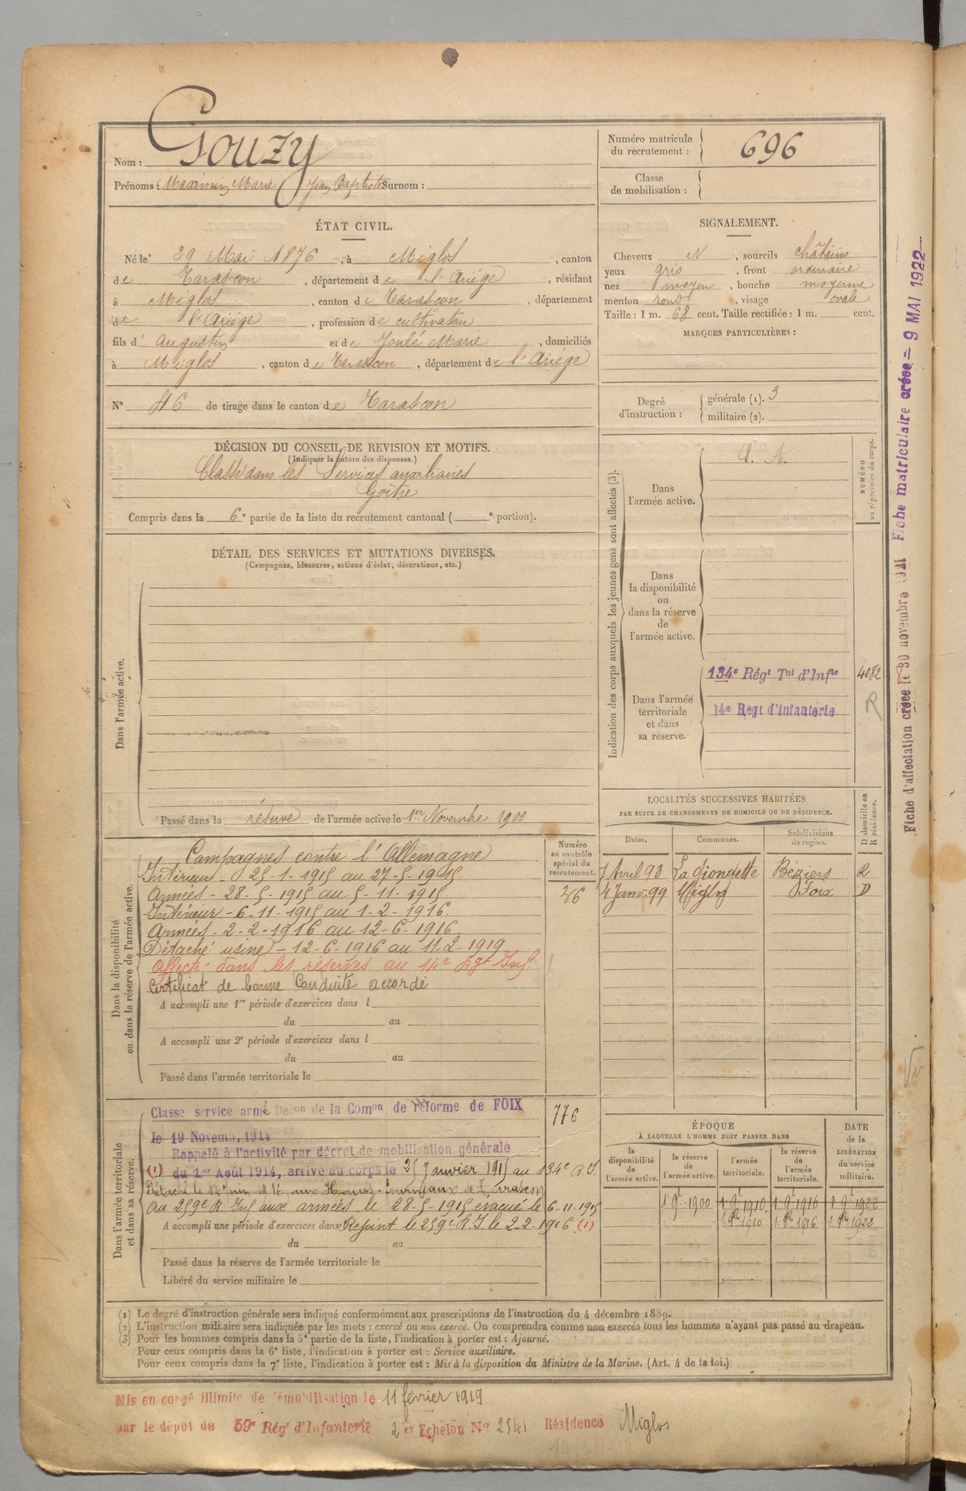 Gouzy
Nom :
Prénoms : Maximin Marie Jean Baptiste Surnom :
Numéro matricule du recrutement : 696
Classe de mobilisation :
ÉTAT CIVIL.
Né le 29 Mai 1876, à Miglos, canton
de Tarascon, département de l'Ariège, résidant
à Miglos, canton de Tarascon, département
de l'Ariège, profession de cultivateur
fils d'Augustin et de Joulé Marie, domiciliés
à Miglos, canton de Tarascon, département de l'Ariège
N° 46 de tirage dans le canton de Tarascon
SIGNALEMENT.
Cheveux N, sourcils châtains
yeux gris, front ordinaire
nez moyen, bouche moyenne
menton rond, visage ovale
Taille : 1 m. 68 cent. Taille rectifiée : 1 m. cent.
MARQUES PARTICULIÈRES :
Degré d'instruction : générale (1). 3
militaire (2).
DÉCISION DU CONSEIL DE REVISION ET MOTIFS.
(Indiquer la nature des dispenses.)
Classé dans les Services auxiliaires
Goitre
Compris dans la 6e partie de la liste du recrutement cantonal ( e portion).
DÉTAIL DES SERVICES ET MUTATIONS DIVERSES.
(Campagnes, blessures, actions d'éclat, décorations, etc.)
Dans l'armée active.
Passé dans la réserve de l'armée active le 1er Novembre 1900
Indication des corps auxquels les jeunes gens sont affectés (3).
NUMÉRO au répertoire du corps.
Dans l'armée active.
S. A.
Dans la disponibilité ou dans la réserve de l'armée active.
Dans l'armée territoriale et dans sa réserve.
134e Régt Tal d'Infie 4082
14e Regt d'Infanterie R
LOCALITÉS SUCCESSIVES HABITÉES
PAR SUITE DE CHANGEMENTS DE DOMICILE OU DE RÉSIDENCE.
D domicile ou R résidence.
Dates. Communes. Subdivisions de région.
Avril 98 Béziers R
4 Janv. 99 Miglos Foix D
Dans la disponibilité ou dans la réserve de l'armée active.
Numéro au contrôle spécial du recrutement.
Campagnes contre l'Allemagne
Intérieur - 25-1-1915 au 27-5-1915
Armées - 28-5-1915 au 5-11-1915
Intérieur - 6-11-1915 au 1-2-1916
Armées - 2-2-1916 au 12-6-1916
Détaché usine - 12-6-1916 au 11-2-1919
Affecté dans les réserves au 14e Rgt Inf.
Certificat de bonne Conduite accordé
A accompli une 1re période d'exercices dans l
du au
A accompli une 2e période d'exercices dans l
du au
Passé dans l'armée territoriale le
Dans l'armée territoriale et dans sa réserve.
Classe service armé Decon de la Comon de réforme de FOIX
776
le 19 Novemb. 1914
Rappelé à l'activité par décret de mobilisation générale
(1) du 1er Août 1914, arrivé au corps le 25 Janvier 1915 au 134e R.I.
au 259e R Inf aux armées le 28-5-1915 evacué le 6-11-1915
A accompli une période d'exercices dans Rejoint le 259e R.I le 2-2-1916 (1)
du au
Passé dans la réserve de l'armée territoriale le
Libéré du service militaire le
ÉPOQUE
À LAQUELLE L'HOMME DOIT PASSER DANS
la disponibilité de l'armée active. la réserve de l'armée active. l'armée territoriale. la réserve de l'armée territoriale.
DATE de la LIBÉRATION du service militaire.
1 9bre 1900 1 9bre 1910 1 9bre 1916 1 9bre 1922
1910 1916 1922
(1) Le degré d'instruction générale sera indiqué conformément aux prescriptions de l'instruction du 4 décembre 1889.
(2) L'instruction militaire sera indiquée par les mots : exercé ou non exercé. On comprendra comme non exercés tous les hommes n'ayant pas passé au drapeau.
(3) Pour les hommes compris dans la 5e partie de la liste, l'indication à porter est : Ajourné.
Pour ceux compris dans la 6e liste, l'indication à porter est : Service auxiliaire.
Pour ceux compris dans la 7e liste, l'indication à porter est : Mis à la disposition du Ministre de la Marine. (Art. 4 de la loi.)
Mis en congé illimité de démobilisation le 11 février 1919
par le dépot du 59e Rég d'Infanterie 2me Echelon No 2541 Résidence Miglos
Fiche d'affectation créée le 30 novembre 1921 Fiche matriculaire créée = 9 MAI 1922